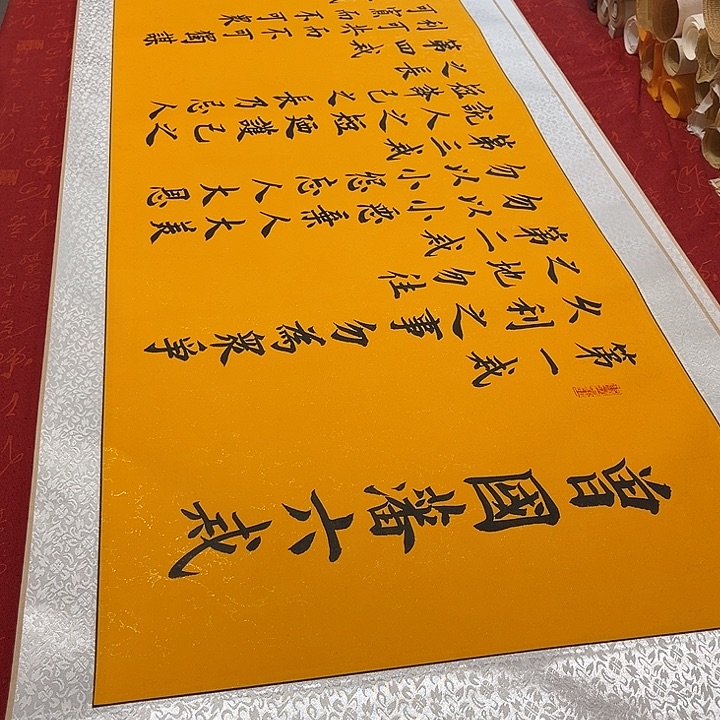 曾國藩六戒
第一戒
久利之事勿為眾爭
之地勿往
第二戒
勿以小惡棄人大美
勿以小怨忘人大恩
第三戒
說人之短便護己之
短夸己之長乃忌人
之長
第四戒
利可共而不可獨謀
可寡而不可眾